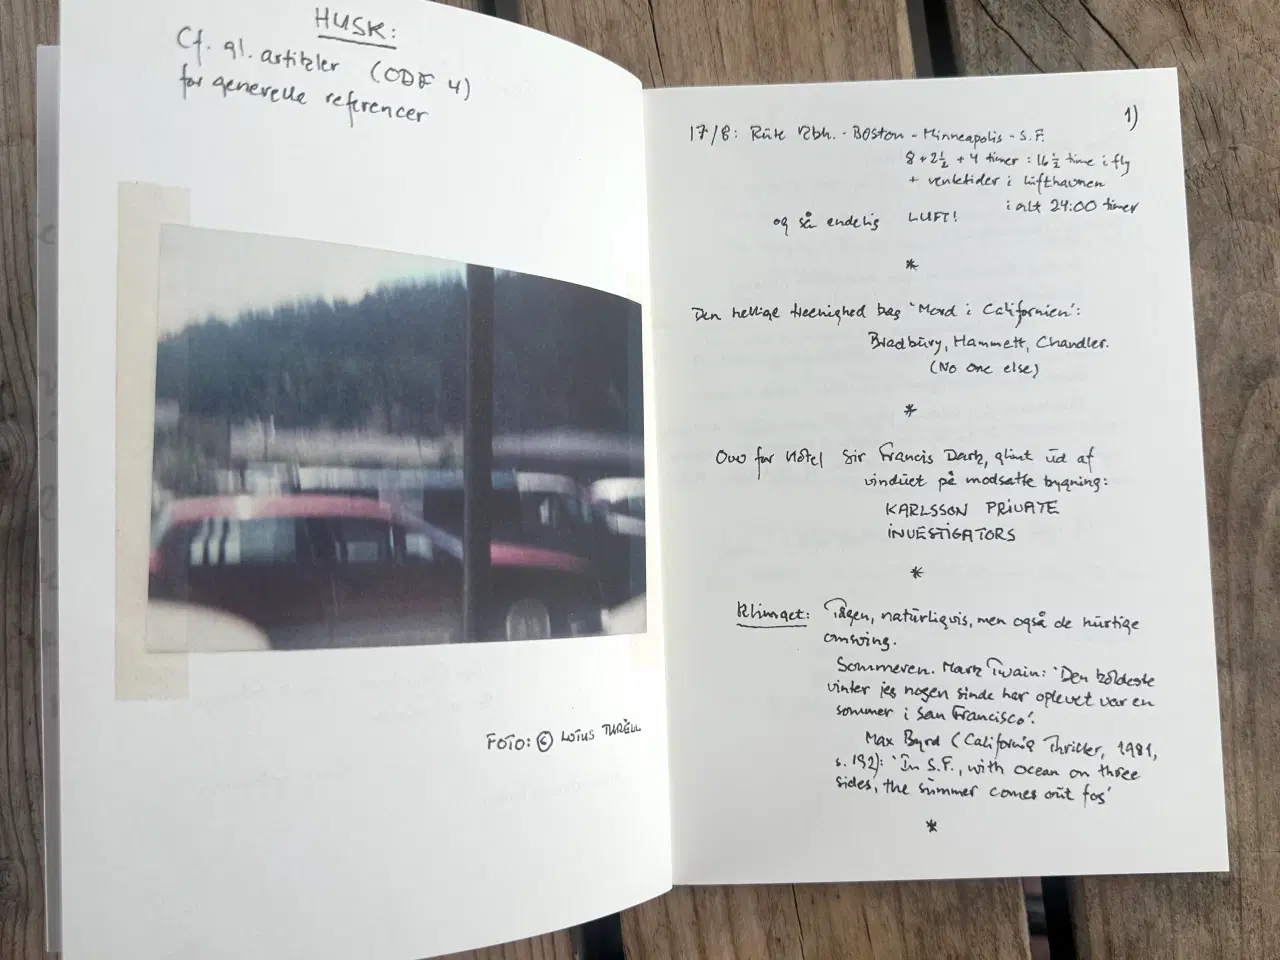 HUSK:
Cf. gl. artikler (ODF 4)
for generelle referencer
FOTO: © LOTUS TURÈLL
1)
17/8: Rute Kbh. - Boston - Minneapolis - S.F.
8 + 2½ + 4 timer : 16½ time i fly
+ ventetider i lufthavnen
i alt 24:00 timer
og så endelig LUFT!
*
Den hellige treenighed bag 'Mord i Californien':
Bradbury, Hammett, Chandler.
(No one else)
*
Ovo for Hotel Sir Francis Dark, glimt ud af
vinduet på modsatte bygning:
KARLSSON PRIVATE
INVESTIGATORS
*
Klimaet: Tågen, naturligvis, men også de hurtige
omsving.
Sommeren. Mark Twain: 'Den koldeste
vinter jeg nogen sinde har oplevet var en
sommer i San Francisco'.
Max Byrd (California Thriller, 1981,
s. 192): 'In S.F., with ocean on three
sides, the summer comes out fog'
*